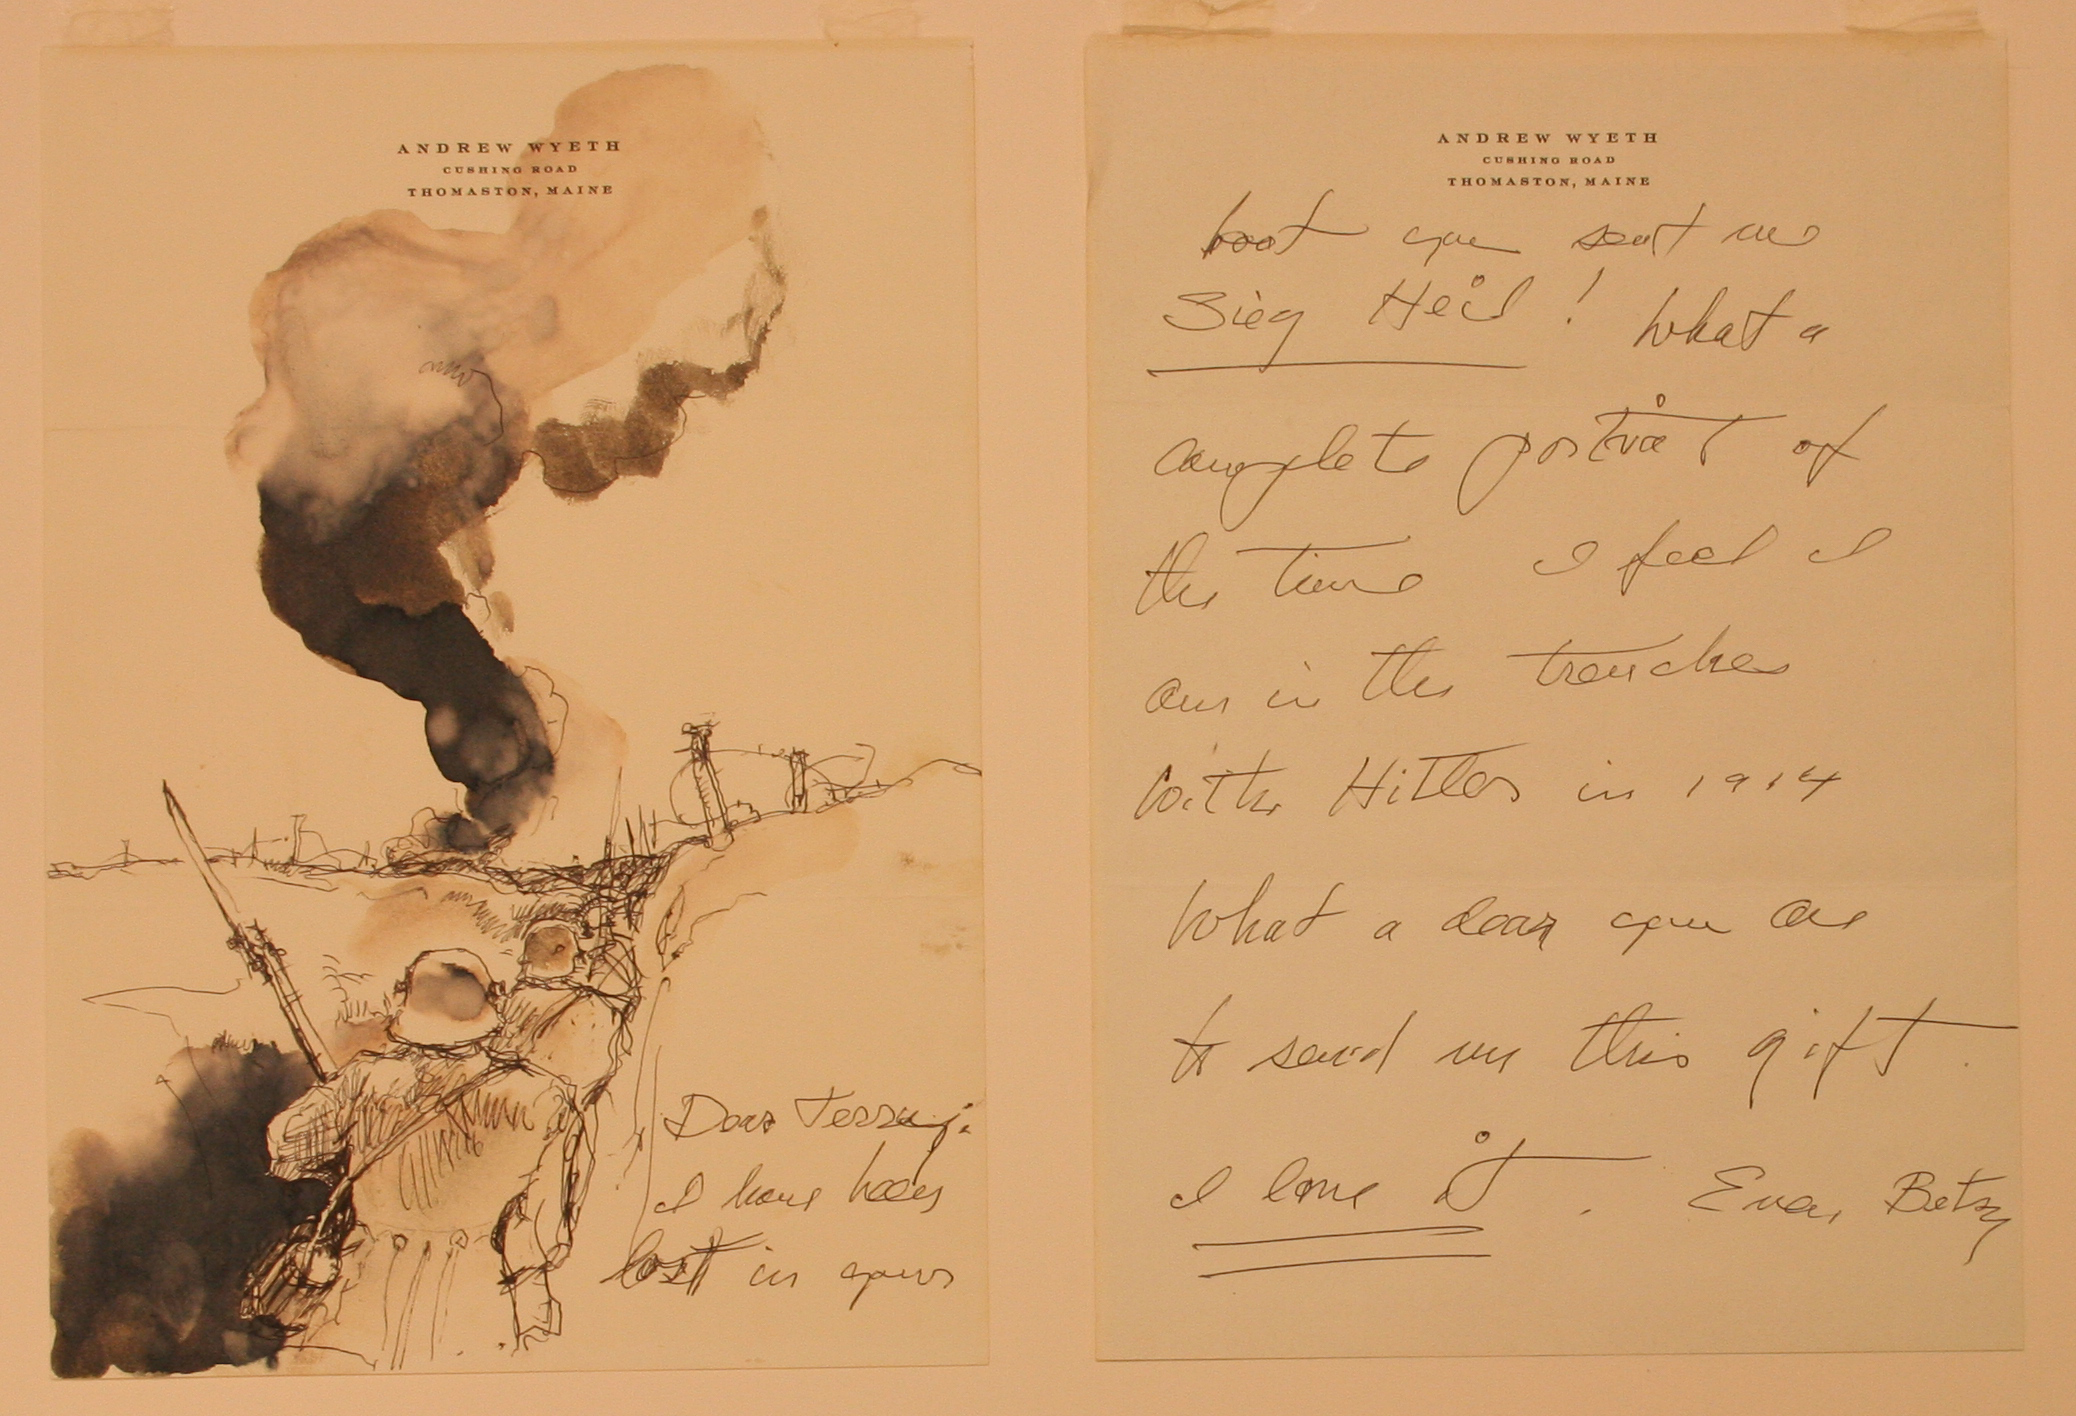 ANDREW WYETH
CUSHING ROAD
THOMASTON, MAINE
Dear Terry.
I have been
lost in your
ANDREW WYETH
CUSHING ROAD
THOMASTON, MAINE
boot you sent me
Sieg Heil! What a
complete portrait of
the time I feel I
am in the trenches
with Hitler in 1914
What a dear you are
to send me this gift.
I love it. Ever, Betsy